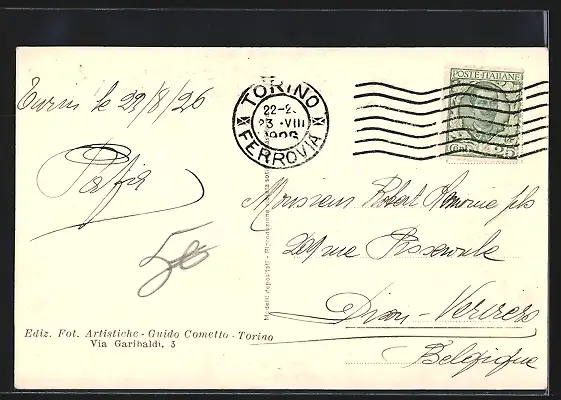 Turin le 23/8/26
TORINO
22-2
23 · VIII
1926
FERROVIA
POSTE·ITALIANE
Cent 25
50
Monsieur Robert fils
Dison-Verviers
Belgique
Ediz. Fot. Artistiche - Guido Cometto - Torino
Via Garibaldi, 3
Modelli depositati - Riproduzione